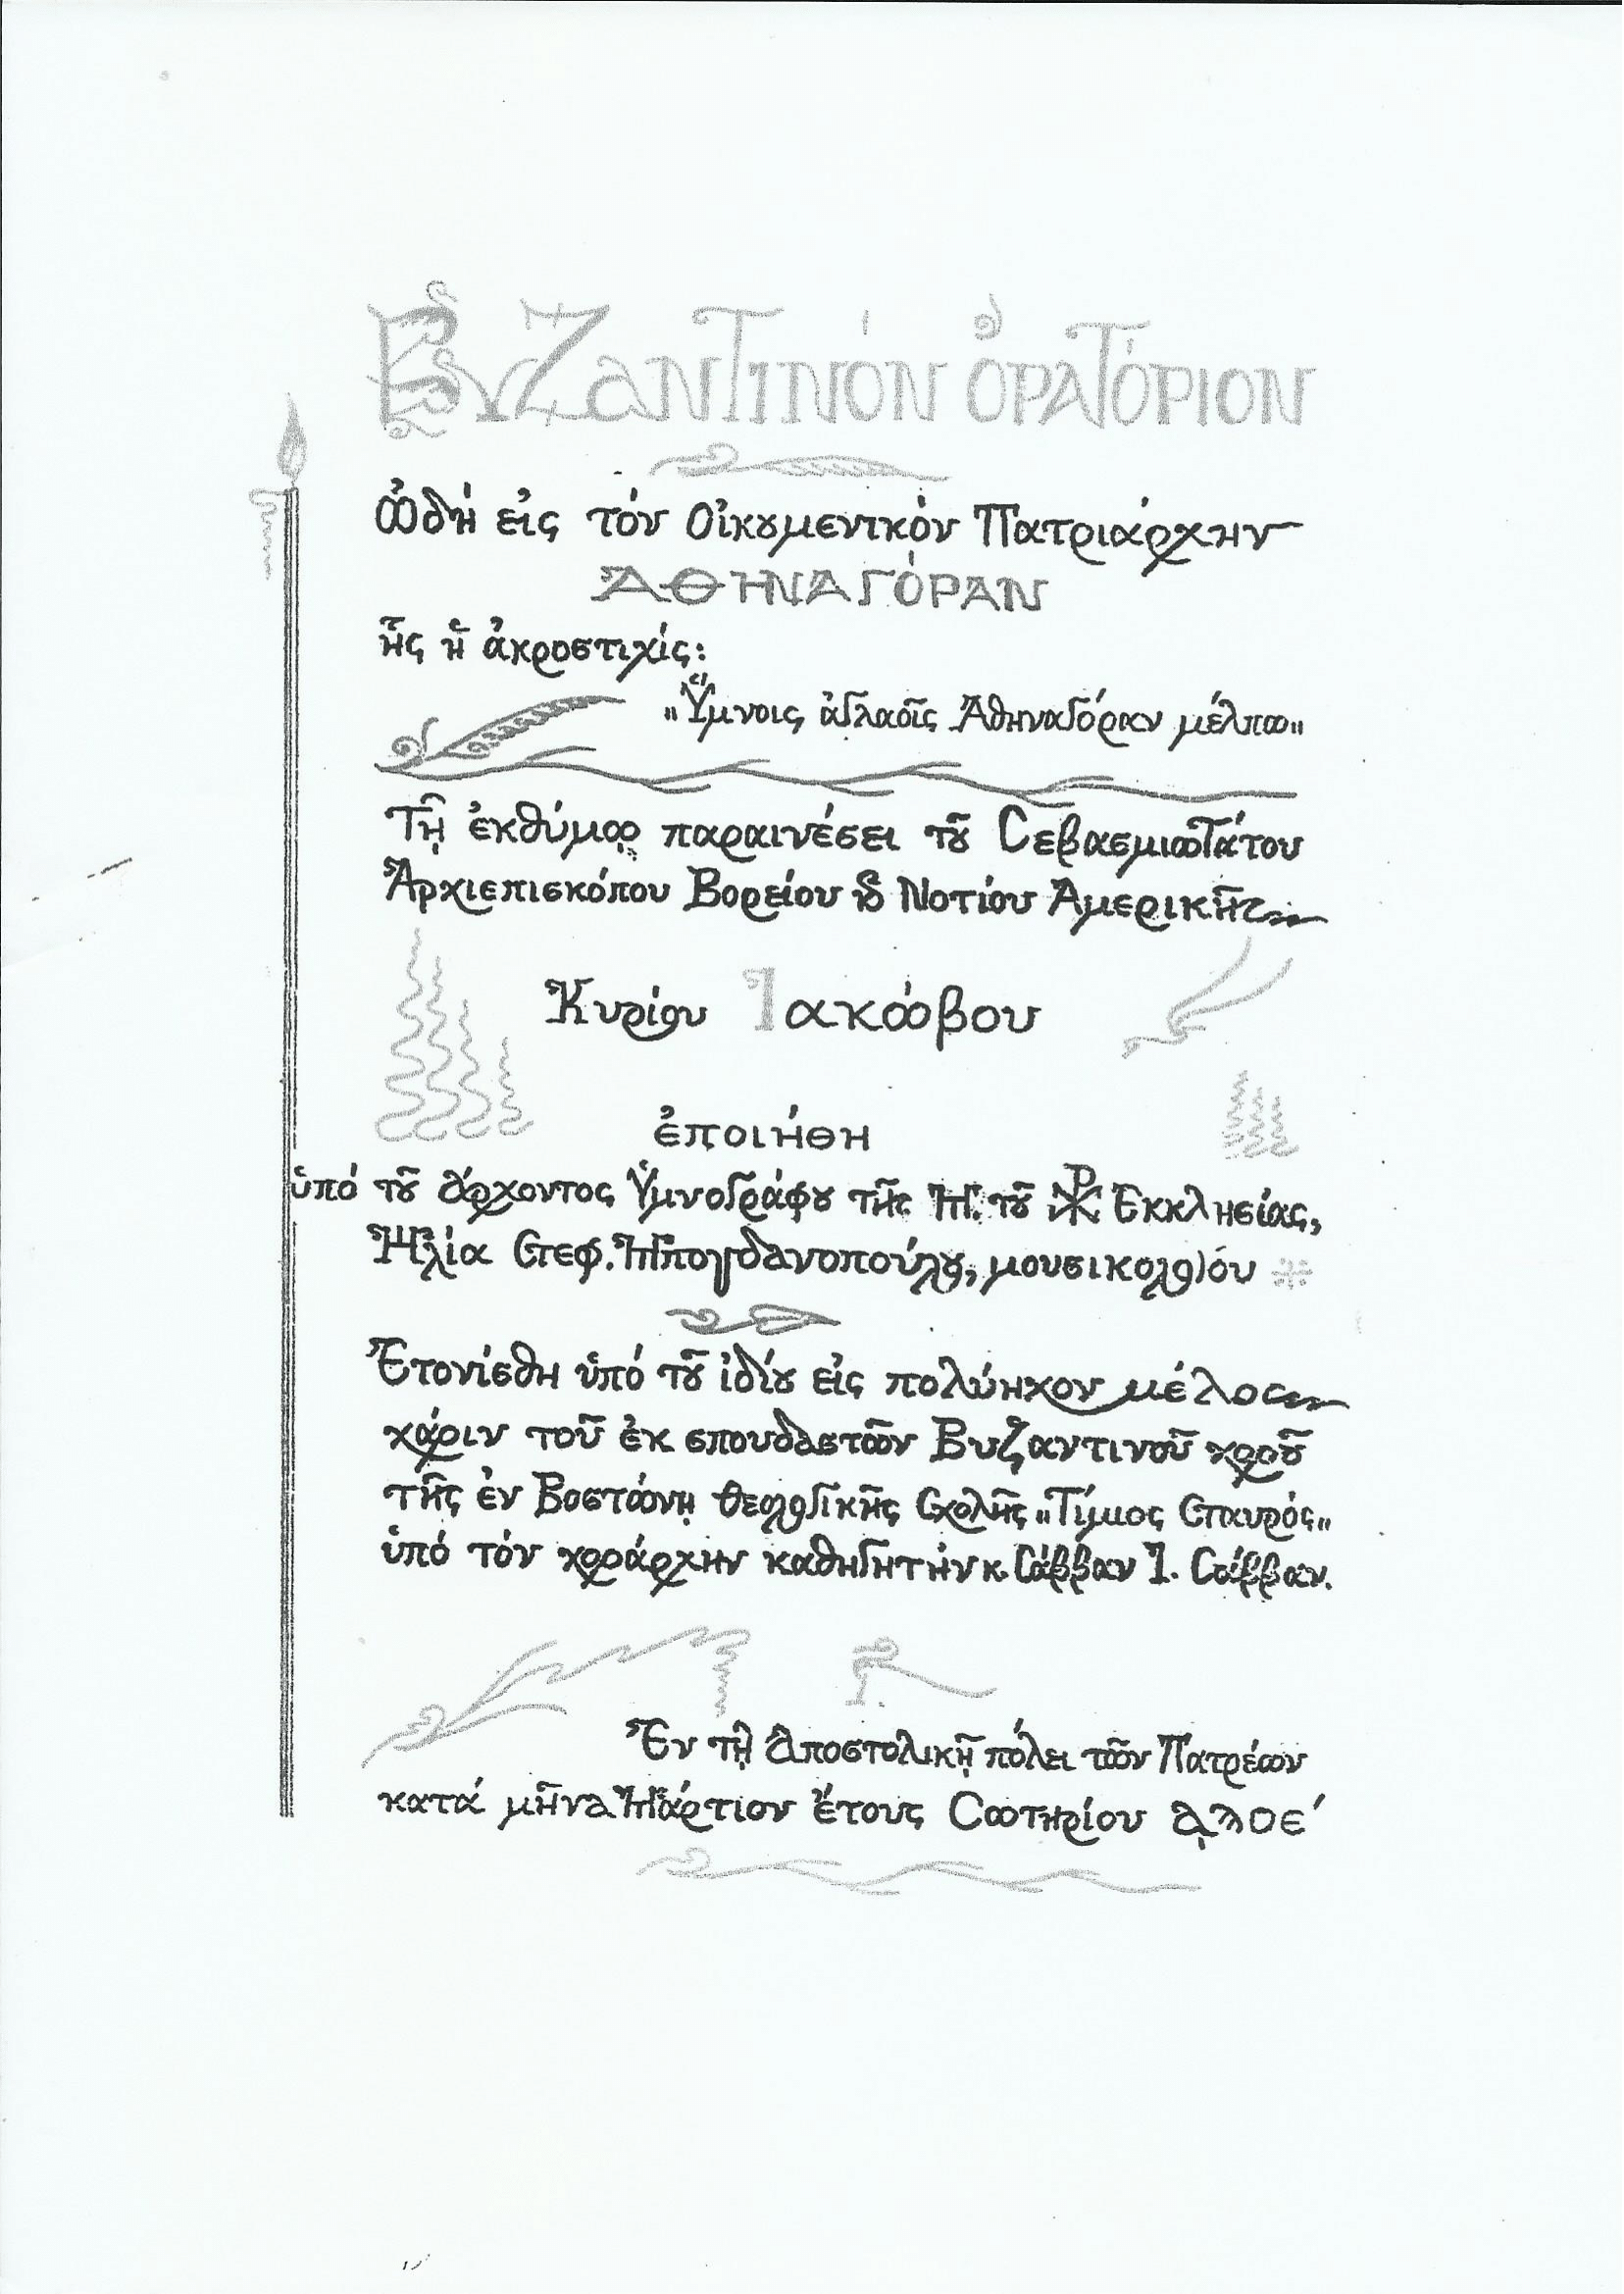 Βυζαντινόν ὁρατόριον
Ὠδή εἰς τόν Οἰκουμενικόν Πατριάρχην
ἈΘΗΝΑΓΌΡΑΝ
ἧς ἡ ἀκροστιχίς:
„Ὕμνοις ἀγλαοῖς Ἀθηναγόραν μέλπω„
Τῇ ἐκθύμῳ παραινέσει τοῦ Σεβασμιωτάτου
Ἀρχιεπισκόπου Βορείου ϗ Νοτίου Ἀμερικῆς
Κυρίου Ἰακώβου
ἐποιήθη
ὑπό τοῦ ἄρχοντος Ὑμνογράφου τῆς Μ. τοῦ ☧ Ἐκκλησίας,
Ἠλία Στεφ. Μπογδανοπούλου, μουσικολόγου
Ἐτονίσθη ὑπό τοῦ ἰδίου εἰς πολύηχον μέλος
χάριν τοῦ ἐκ σπουδαστῶν Βυζαντινοῦ χοροῦ
τῆς ἐν Βοστώνῃ Θεολογικῆς Σχολῆς „Τίμιος Σταυρός„
ὑπό τόν χοράρχην καθηγητήν κ. Σάββαν Ἰ. Σάββαν.
Ἐν τῇ Ἀποστολικῇ πόλει τῶν Πατρέων
κατά μῆνα Μάρτιον ἔτους Σωτηρίου ͵αϡοε΄